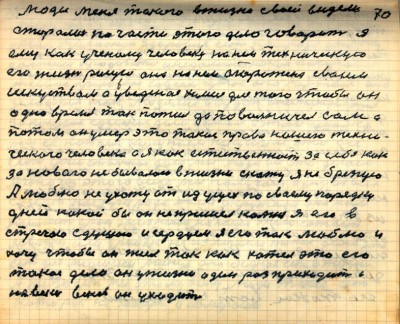 70
Люди меня такого в жизни своей видели
старались по части этого дело говорить я
ему как ученому человеку на нем техническую
его жизнь рисую она на нем сторожена своем
искуством а уведеная химия для того чтобы он
одно время так попил да повольничел сам а
потом он умер это такое право нашего техни-
ческого человека а я как естественност за себя как
за нового не бывалого в жизни скажу я не брезгую
А люблю не ухожу от идущех по своему порядку
дней какой бы он не пришел ко мне Я его в
стречаю с душою и сердцем я его так люблю и
хочу чтобы он жил так как хотел это его
такое дело он у жизни один раз приходит а
на веки веков он уходит